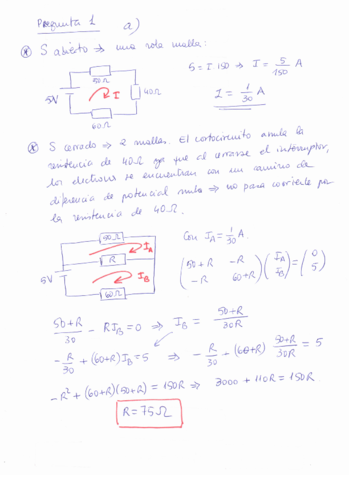 Pregunta 1 a)
* S abierto ⇒ una sola malla:
50Ω
5V
I
40Ω
60Ω
5 = I 150 ⇒ I = 5/150 A
I = 1/30 A
* S cerrado ⇒ 2 mallas. El cortocircuito anula la
resistencia de 40Ω ya que al cerrarse el interruptor,
los electrones se encuentran con un camino de
diferencia de potencial nula ⇒ no pasa corriente por
la resistencia de 40Ω.
50Ω
I_A
R
5V
I_B
60Ω
Con I_A = 1/30 A
(50+R -R) (I_A) = (0)
(-R 60+R) (I_B) (5)
50+R/30 - R I_B = 0 ⇒ I_B = 50+R/30R
-R/30 + (60+R) I_B = 5 ⇒ -R/30 + (60+R) 50+R/30R = 5
-R² + (60+R)(50+R) = 150R ⇒ 3000 + 110R = 150R
R = 75Ω